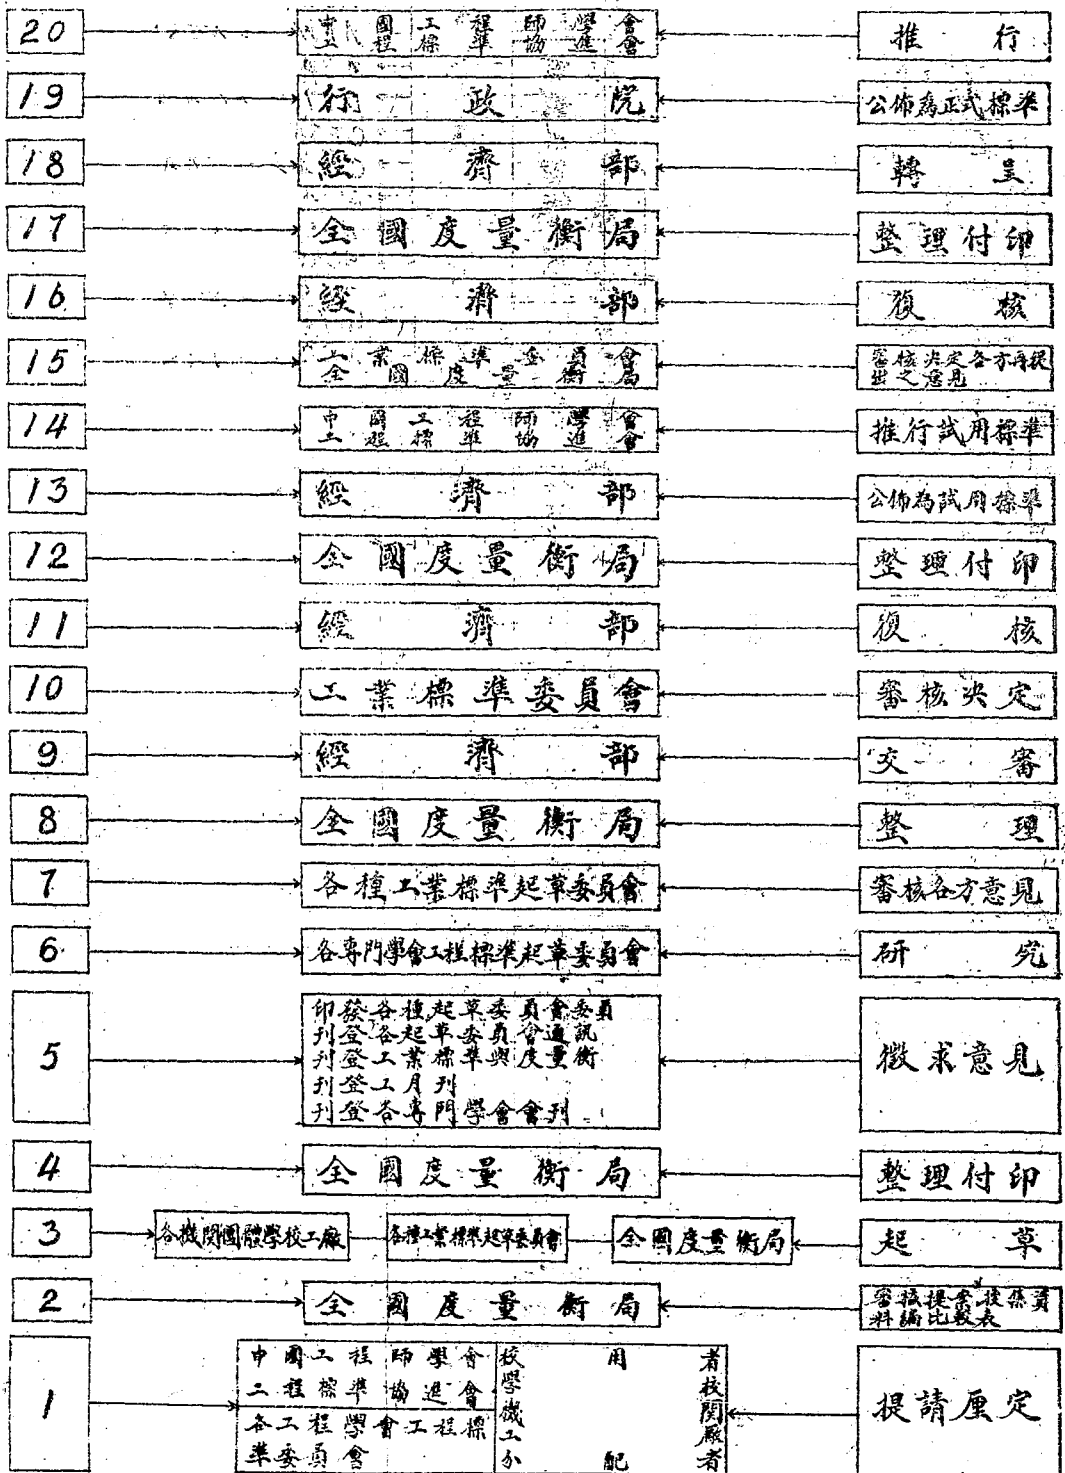 20 中國工程師學會 推行
工程標準協進會
19 行政院 公佈為正式標準
18 經濟部 轉呈
17 全國度量衡局 整理付印
16 經濟部 復核
15 工業標準委員會 審核決定各方再提
全國度量衡局 出之意見
14 中國工程師學會 推行試用標準
工程標準協進會
13 經濟部 公佈為試用標準
12 全國度量衡局 整理付印
11 經濟部 復核
10 工業標準委員會 審核決定
9 經濟部 交審
8 全國度量衡局 整理
7 各種工業標準起草委員會 審核各方意見
6 各專門學會工程標準起草委員會 研究
5 徵求意見
印發各種起草委員會委員
刊登各起草委員會通訊
刊登工業標準與度量衡
刊登工月刊
刊登各專門學會會刊
4 全國度量衡局 整理付印
3 各機関團體學校工廠 各種工業標準起草委員會 全國度量衡局 起草
2 全國度量衡局 審核提案搜集資
料編比較表
1 提請厘定
中國工程師學會
工程標準協進會
各工程學會工程標
準委員會
用者
學校
機関
工廠
分配者